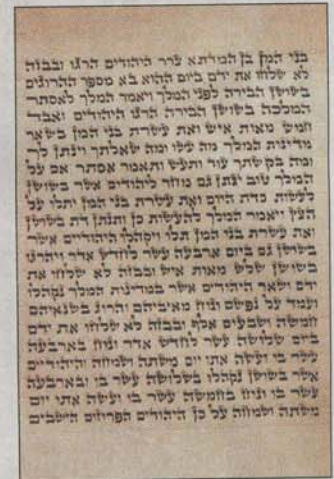 בני המן בן המדתא צרר היהודים הרגו ובבזה
לא שלחו את ידם ביום ההוא בא מספר ההרוגים
בשושן הבירה לפני המלך ויאמר המלך לאסתר
המלכה בשושן הבירה הרגו היהודים ואבד
חמש מאות איש ואת עשרת בני המן בשאר
מדינות המלך מה עשו ומה שאלתך וינתן לך
ומה בקשתך עוד ותעש ותאמר אסתר אם על
המלך טוב ינתן גם מחר ליהודים אשר בשושן
לעשות כדת היום ואת עשרת בני המן יתלו על
העץ ויאמר המלך להעשות כן ותנתן דת בשושן
ואת עשרת בני המן תלו ויקהלו היהודיים אשר
בשושן גם ביום ארבעה עשר לחדש אדר ויהרגו
בשושן שלש מאות איש ובבזה לא שלחו את
ידם ושאר היהודים אשר במדינות המלך נקהלו
ועמד על נפשם ונוח מאיביהם והרוג בשנאיהם
חמשה ושבעים אלף ובבזה לא שלחו את ידם
ביום שלושה עשר לחדש אדר ונוח בארבעה
עשר בו ועשה אתו יום משתה ושמחה והיהודיים
אשר בשושן נקהלו בשלושה עשר בו ובארבעה
עשר בו ונוח בחמשה עשר בו ועשה אתו יום
משתה ושמחה על כן היהודים הפרוזים הישבים